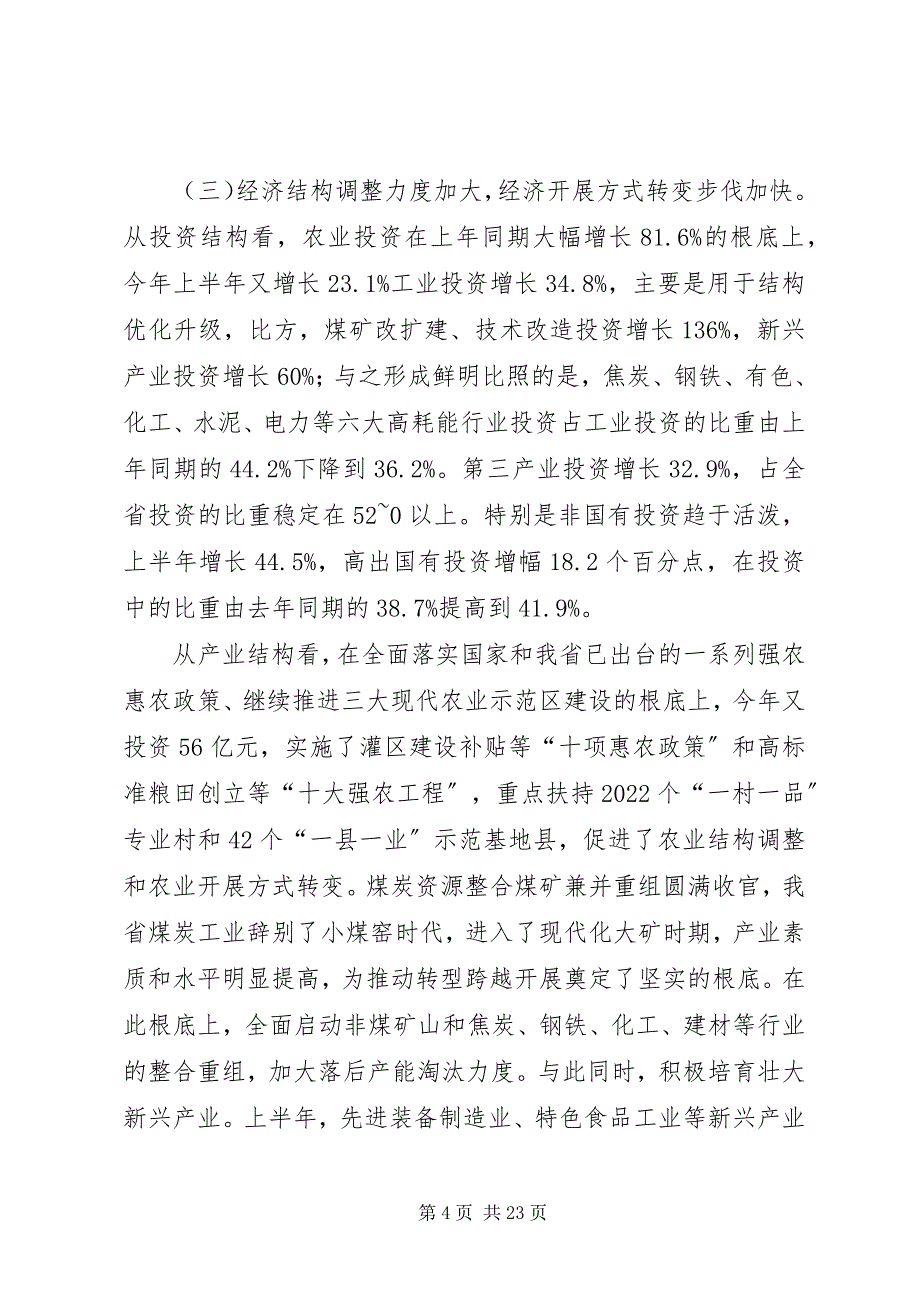 （三）经济结构调整力度加大，经济开展方式转变步伐加快。
从投资结构看，农业投资在上年同期大幅增长 81.6%的根底上，
今年上半年又增长 23.1%工业投资增长 34.8%，主要是用于结构
优化升级，比方，煤矿改扩建、技术改造投资增长 136%，新兴
产业投资增长 60%；与之形成鲜明比照的是，焦炭、钢铁、有色、
化工、水泥、电力等六大高耗能行业投资占工业投资的比重由上
年同期的 44.2%下降到 36.2%。第三产业投资增长 32.9%，占全
省投资的比重稳定在 52~0 以上。特别是非国有投资趋于活泼，
上半年增长 44.5%，高出国有投资增幅 18.2 个百分点，在投资
中的比重由去年同期的 38.7%提高到 41.9%。
从产业结构看，在全面落实国家和我省已出台的一系列强农
惠农政策、继续推进三大现代农业示范区建设的根底上，今年又
投资 56 亿元，实施了灌区建设补贴等“十项惠农政策〞和高标
准粮田创立等“十大强农工程〞，重点扶持 2022 个“一村一品〞
专业村和 42 个“一县一业〞示范基地县，促进了农业结构调整
和农业开展方式转变。煤炭资源整合煤矿兼并重组圆满收官，我
省煤炭工业辞别了小煤窑时代，进入了现代化大矿时期，产业素
质和水平明显提高，为推动转型跨越开展奠定了坚实的根底。在
此根底上，全面启动非煤矿山和焦炭、钢铁、化工、建材等行业
的整合重组，加大落后产能淘汰力度。与此同时，积极培育壮大
新兴产业。上半年，先进装备制造业、特色食品工业等新兴产业
第 4 页 共 23 页